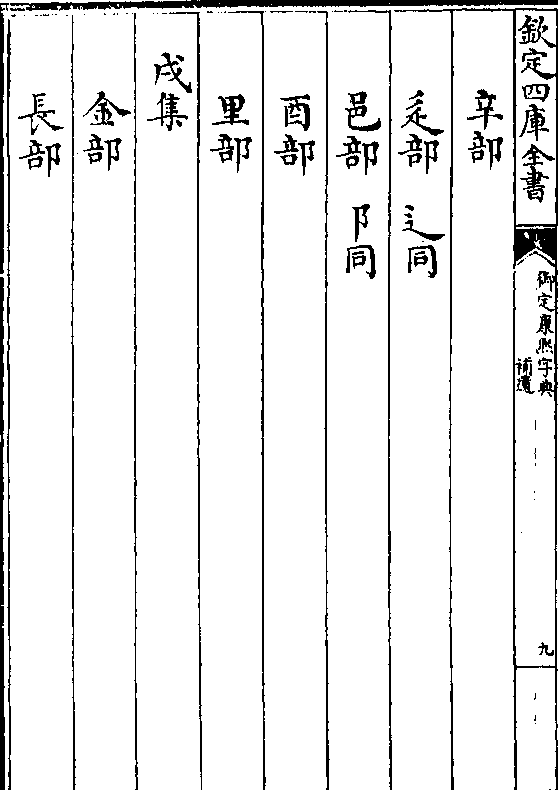 欽定四庫全書
御定康熙字典
補遺
九
辛部
辵部 辶同
邑部 阝同
酉部
里部
戌集
金部
長部